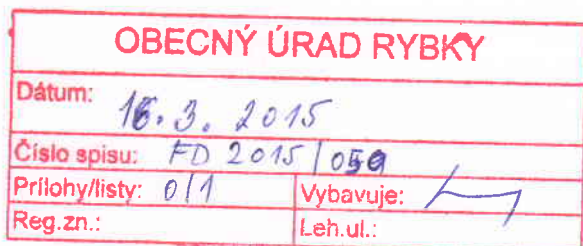 OBECNÝ ÚRAD RYBKY
Dátum: 16.3.2015
Číslo spisu: FD 2015/059
Prílohy/listy: 0/1 Vybavuje:
Reg.zn.: Leh.ul.: